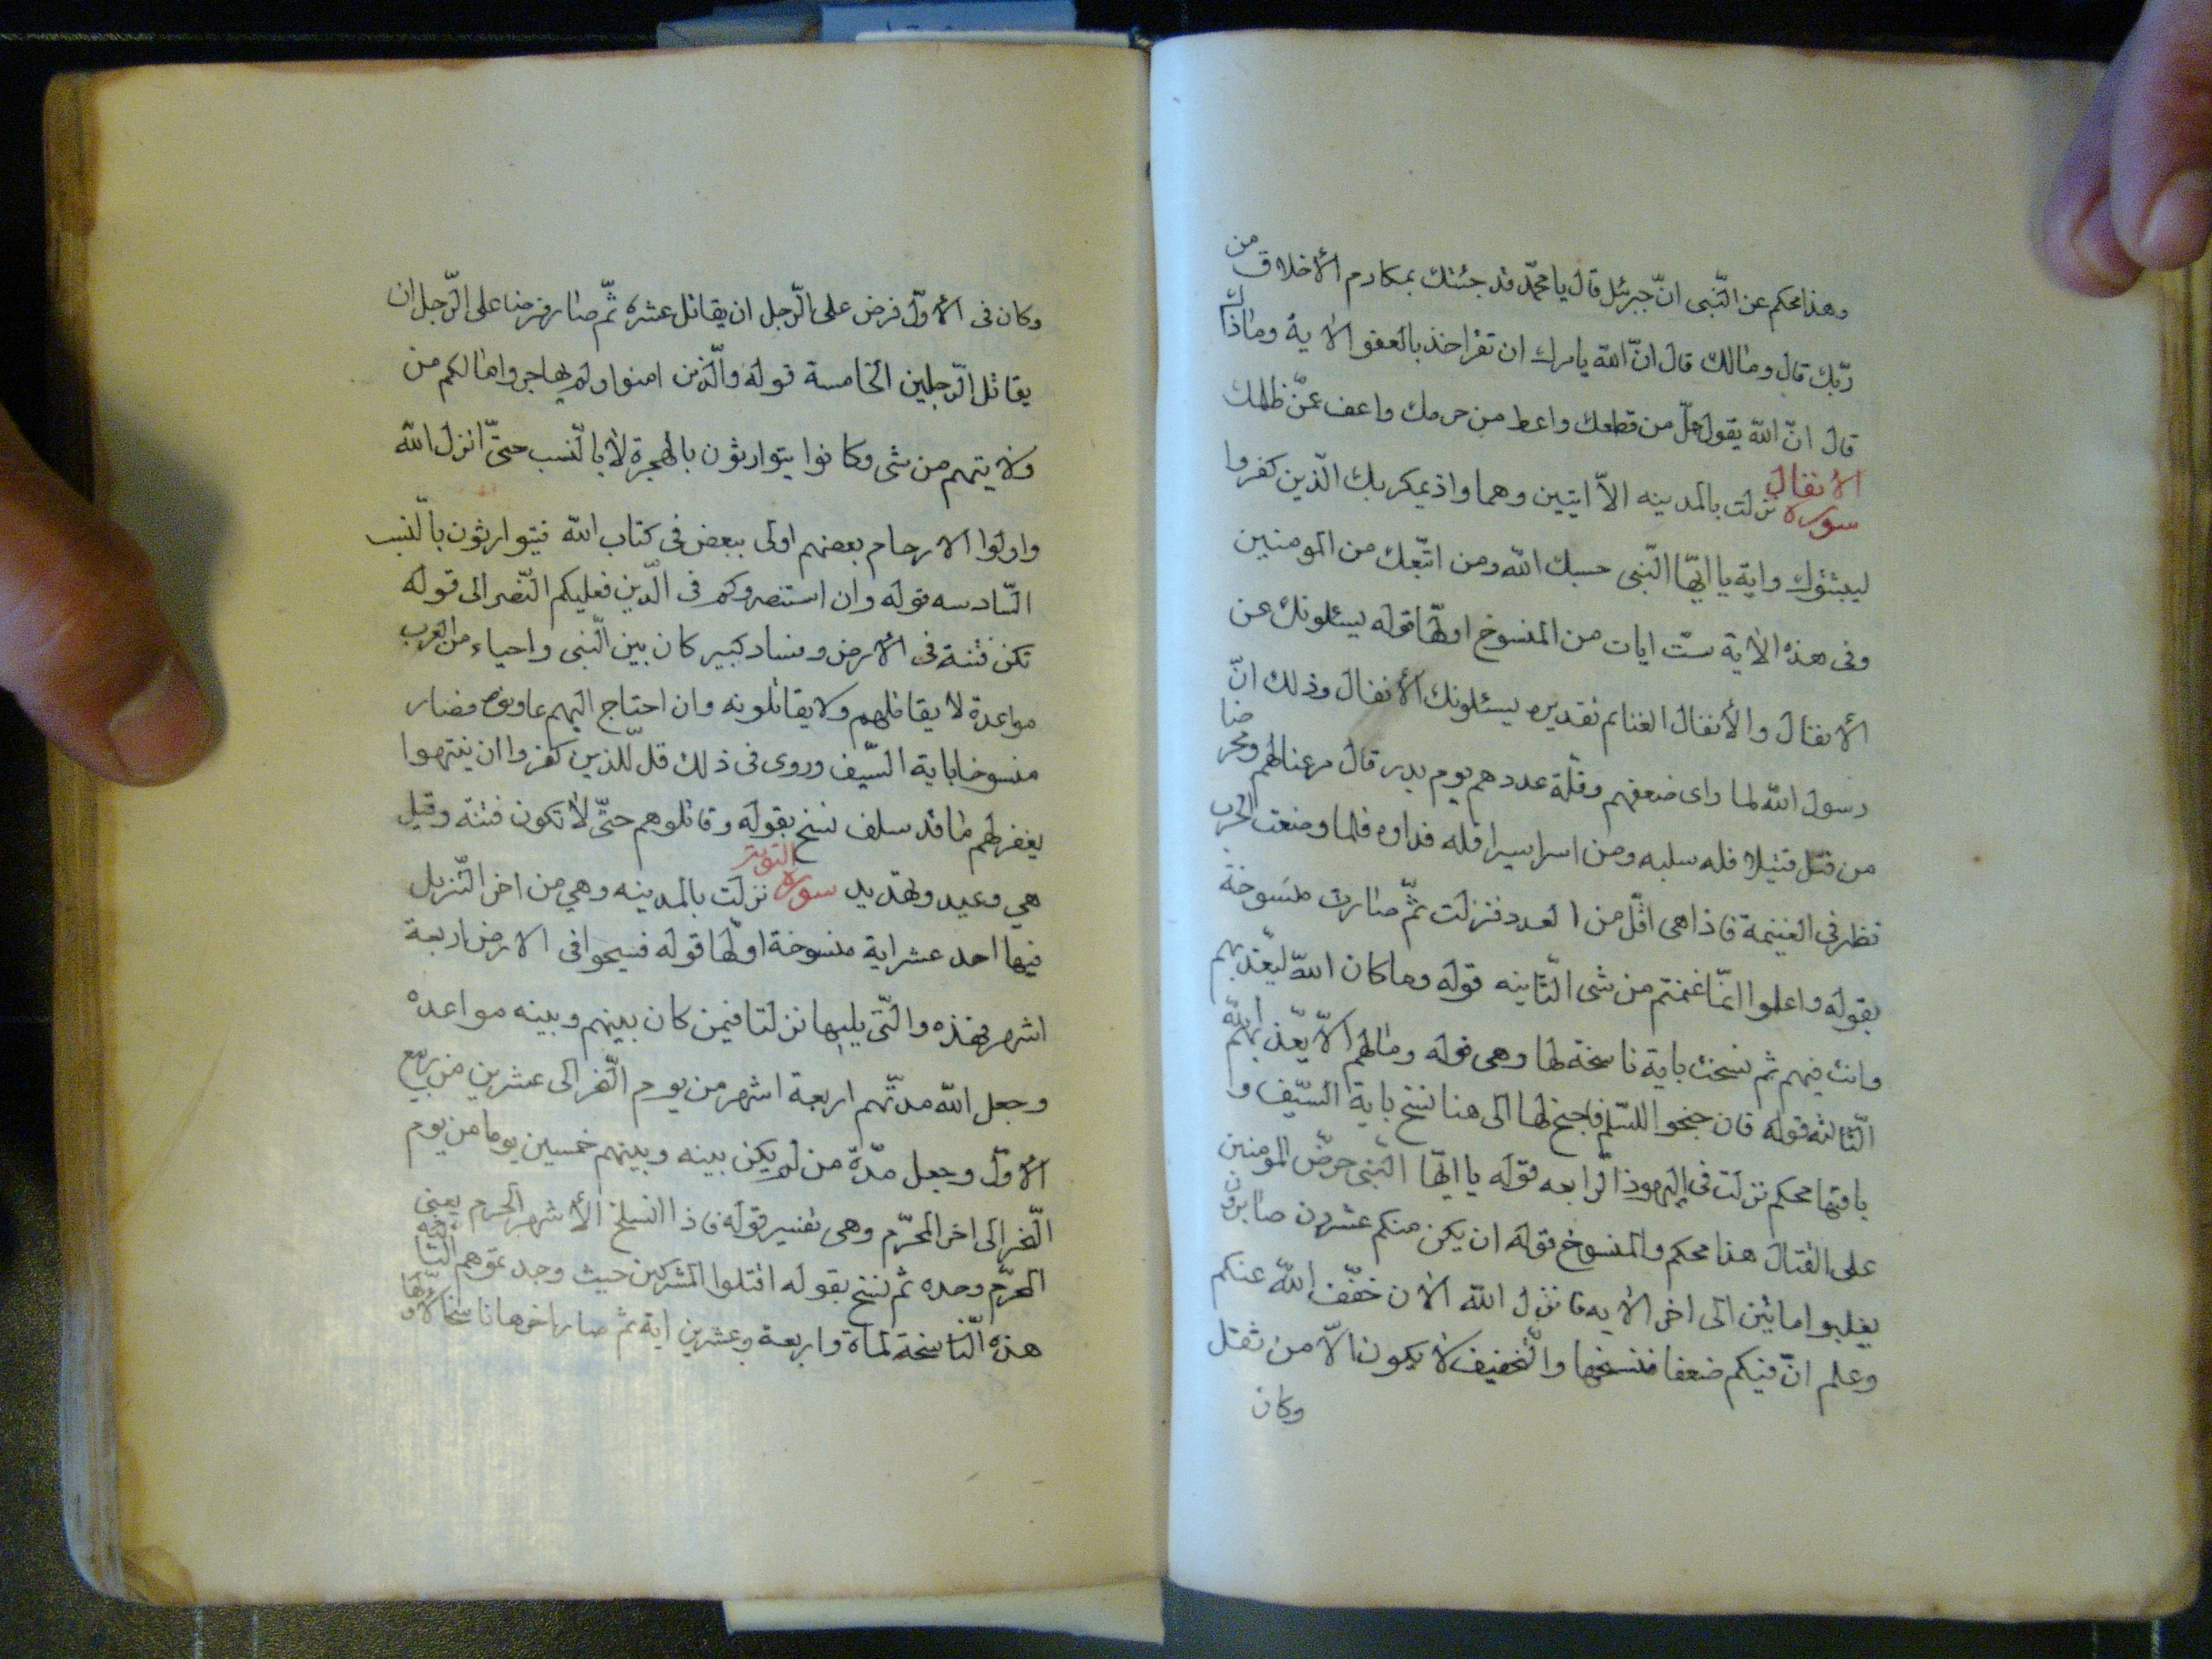 وهذا محكم عن النّبى انّ جبرئل قال يا محمّد قد جئتك بمكارم الأخلاق من
ربّك قال وما لك قال انّ الله يامرك ان تقرا خذ بالعفو الاية وماذاك
قال انّ الله يقول صلّ من قطعك واعط من حرمك واعف عمّن ظلمك
سورة الانفال نزلت بالمدينه الاّ ايتين وهما واذ يمكر بك الّذين كفروا
ليثبتوك واية يا ايّها النّبى حسبك الله ومن اتّبعك من المومنين
وفى هذه الاية ستّ ايات من المنسوخ اولّها قوله يسئلونك عن
الأنفال والأنفال الغنائم تقديره يسئلونك الأنفال وذلك انّ
رسول الله لما راى ضعفهم وقلّة عددهم يوم بدر قال مرغبا لهم ومحرضا
من قتل قتيلا فله سلبه ومن اسر اسيرا فله فداوه فلما وضعت الحرب
نظر فى الغنيمة فاذا هى اقلّ من العدد فنزلت ثمّ صارت منسوخة
بقوله واعلموا انمّا غنمتم من شى الثّانيه قوله وما كان الله ليعّذبهم
وانت فيهم ثم نسخت باية ناسخة لها وهى قوله ومالهم الاّ يعّذبهم الله
الثّالثه قوله فان جنحوا للسّلم فاجنح لها الى هنا نسخ باية السّيف و
باقيها محكم نزلت فى اليهود الرّابعه قوله يا ايّها النّبى حرّض المومنين
على القتال هذا محكم والمنسوخ قوله ان يكن منكم عشرون صابرون
يغلبوا مائتين الى اخر الايه فانزل الله الان خفّف الله عنكم
وعلم انّ فيكم ضعفا فنسخها والتّخفيف لا يكون الاّ من ثقل
وكان
وكان فى الأوّل فرض على الرّجل ان يقاتل عشرة ثمّ صار فرضا على الرّجل ان
يقاتل الرّجلين الخامسة قوله والّذين امنوا ولم يهاجروا مالكم من
ولايتهم من شى وكانوا يتوارثون بالهجرة لا بالنّسب حتىّ انزل الله
واولوا الارحام بعضهم اولى ببعض فى كتاب الله فيتوارثون بالنّسب
السّادسه قوله وان استنصروكم فى الدّين فعليكم النّصر الى قوله
تكن فتنة فى الأرض وفساد كبير كان بين النّبى واحياء من العرب
مواعدة لا يقاتلهم ولا يقاتلونه وان احتاج اليهم عاونوه فصار
منسوخا باية السّيف وروى فى ذلك قل للّذين كفروا ان ينتهوا
يغفر لهم ما قد سلف نسخ بقوله وقاتلوهم حتّى لا تكون فتنة وقيل
هي وعيد وتهديد سورة التوبة نزلت بالمدينه وهي من اخر التّنزيل
فيها احد عشر اية منسوخة اولّها قوله فسيحوا فى الارض اربعة
اشهر فهذه والتّى يليها نزلتا فيمن كان بينهم وبينه مواعده
وجعل الله مدّتهم اربعة اشهر من يوم النّحر الى عشرين من ربيع
الأوّل وجعل مدّة من لم يكن بينه وبينهم خمسين يوما من يوم
النّحر الى اخر المحرّم وهى تفسير قوله فاذا انسلخ الأشهر الحرم يعنى
المحرّم وحده ثم نسخ بقوله اقتلوا المشركين حيث وجدتموهم الثّانية
هذه النّاسخة لماة واربعة وعشرين اية ثمّ صار اخرها ناسخا لاوّلها